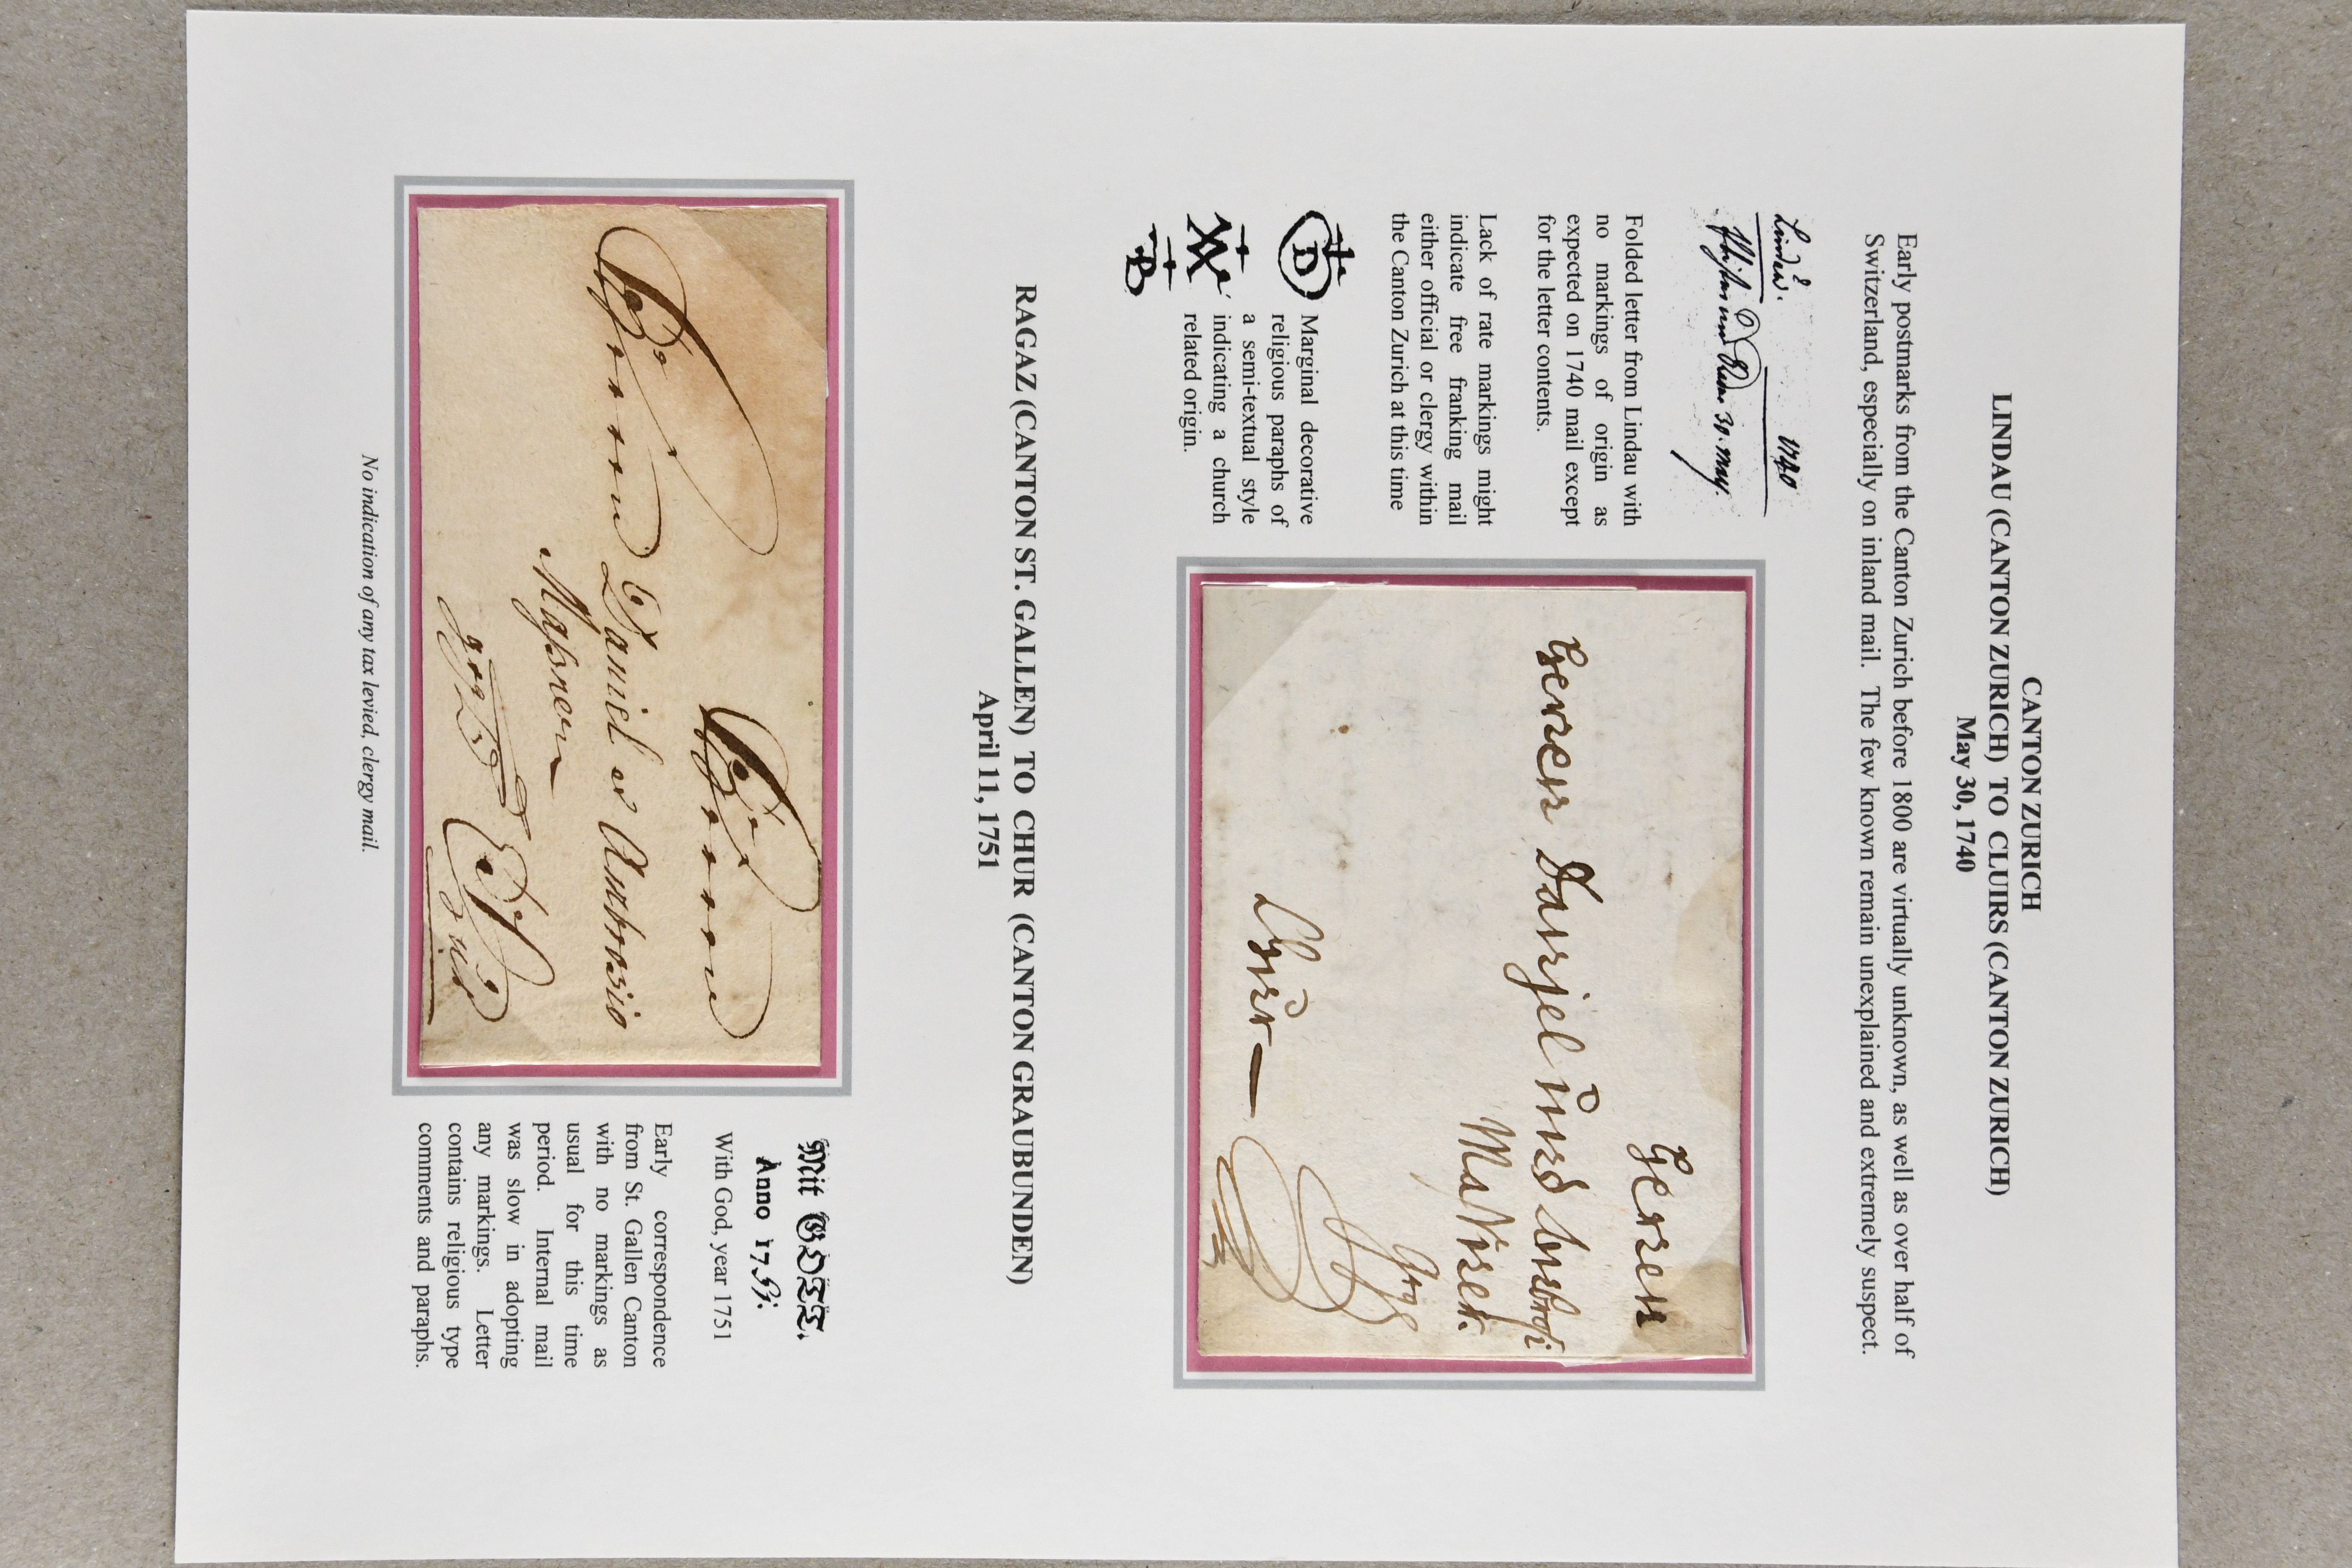 CANTON ZURICH
LINDAU (CANTON ZURICH) TO CLUIRS (CANTON ZURICH)
May 30, 1740
Early postmarks from the Canton Zurich before 1800 are virtually unknown, as well as over half of
Switzerland, especially on inland mail. The few known remain unexplained and extremely suspect.
1740
30. may.
Folded letter from Lindau with
no markings of origin as
expected on 1740 mail except
for the letter contents.
Lack of rate markings might
indicate free franking mail
either official or clergy within
the Canton Zurich at this time
Marginal decorative
religious paraphs of
a semi-textual style
indicating a church
related origin.
Herren
Herren Danjel und
Chur
RAGAZ (CANTON ST. GALLEN) TO CHUR (CANTON GRAUBUNDEN)
April 11, 1751
Daniel & Ambrosio
Mit GOTT.
Anno 1751.
With God, year 1751
Early correspondence
from St. Gallen Canton
with no markings as
usual for this time
period. Internal mail
was slow in adopting
any markings. Letter
contains religious type
comments and paraphs.
No indication of any tax levied, clergy mail.